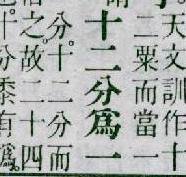 天文訓作十
二粟而當一
十二分爲一
分。十二分而
之。故二十四
十分黍有